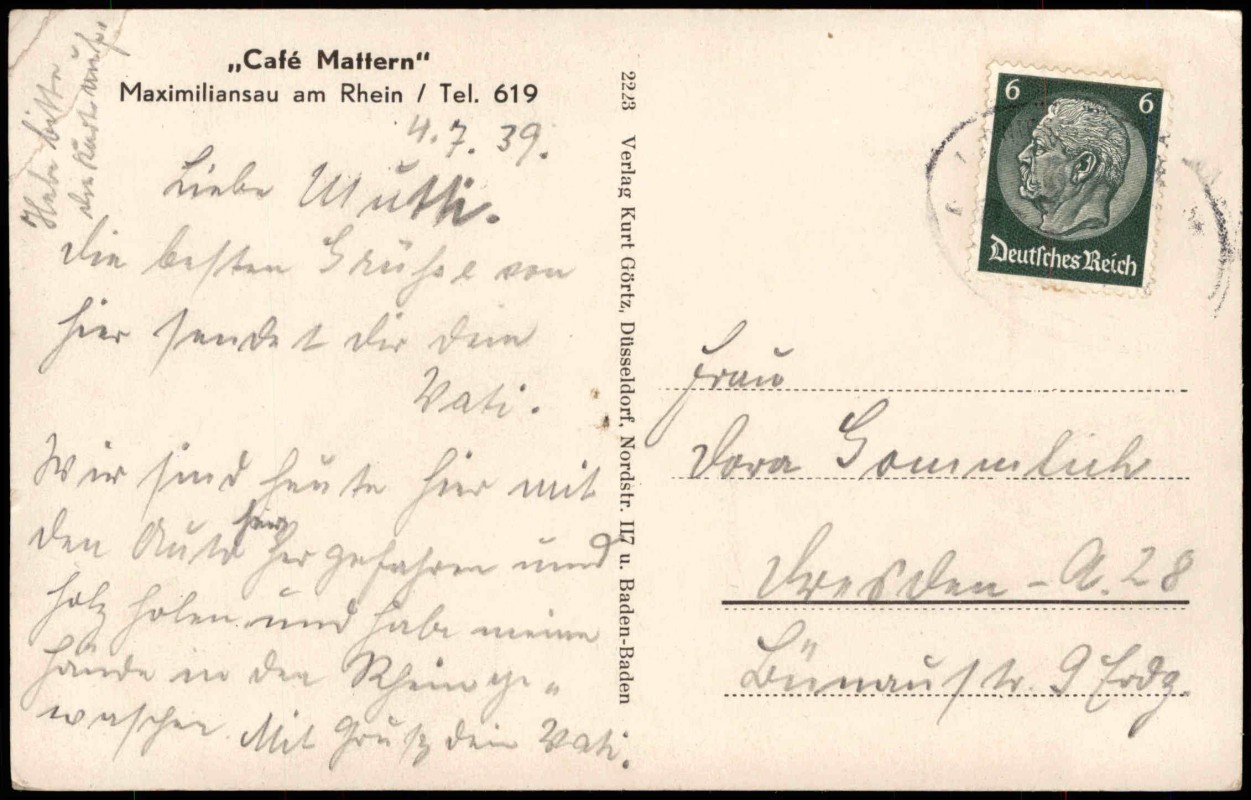 Hebe bitte
die Karte auf.
„Café Mattern“
Maximiliansau am Rhein / Tel. 619
4.7.39.
Liebe Mutti.
die besten Grüße von
hier sendet dir dein
Vati.
Wir sind heute hier mit
den Auto hier
her gefahren und
holz holen und habe meine
hände in den Rhein ge-
waschen. Mit Gruß dein Vati.
2223 Verlag Kurt Görtz, Düsseldorf, Nordstr. 117 u. Baden-Baden
6 6
Deutsches Reich
Frau
Dora Gommlich
Dresden-A. 28
Bünaustr. 9 Erdg.